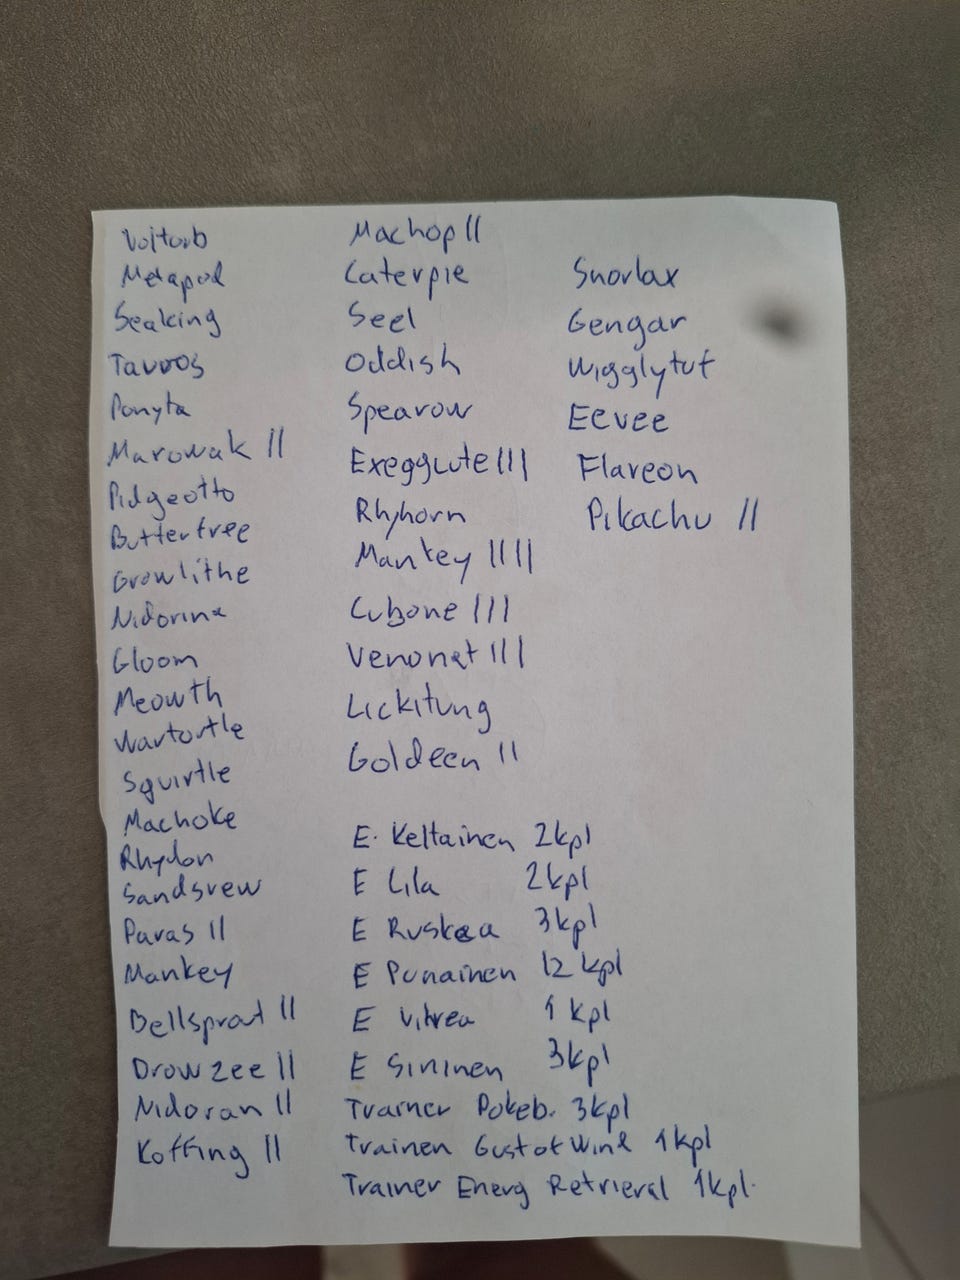 Voltorb
Metapod
Seaking
Tauros
Ponyta
Marowak II
Pidgeotto
Butterfree
Growlithe
Nidorina
Gloom
Meowth
Wartortle
Squirtle
Machoke
Rhydon
Sandsrew
Paras II
Mankey
Bellsprout II
Drowzee II
Nidoran II
Koffing II
Machop II
Caterpie
Seel
Oddish
Spearow
Exeggcute III
Rhyhorn
Mankey IIII
Cubone III
Venonat III
Lickitung
Goldeen II
E. Keltainen 2kpl
E Lila 2kpl
E Ruskea 3kpl
E Punainen 12 kpl
E Vihrea 1 kpl
E Sininen 3kpl
Trainer Pokeb. 3kpl
Trainen Gust of Wind 1kpl
Trainer Energ Retrieral 1kpl.
Snorlax
Gengar
Wigglytuf
Eevee
Flareon
Pikachu II